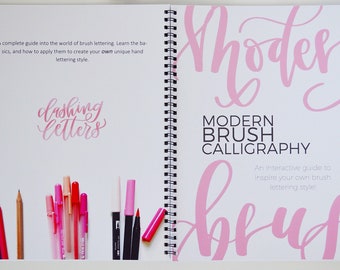 complete guide into the world of brush lettering. Learn the ba-
sics, and how to apply them to create your own unique hand
lettering style.
dashing
letters
Moder
MODERN
BRUSH
CALLIGRAPHY
An interactive guide to
inspire your own brush
lettering style!
brus